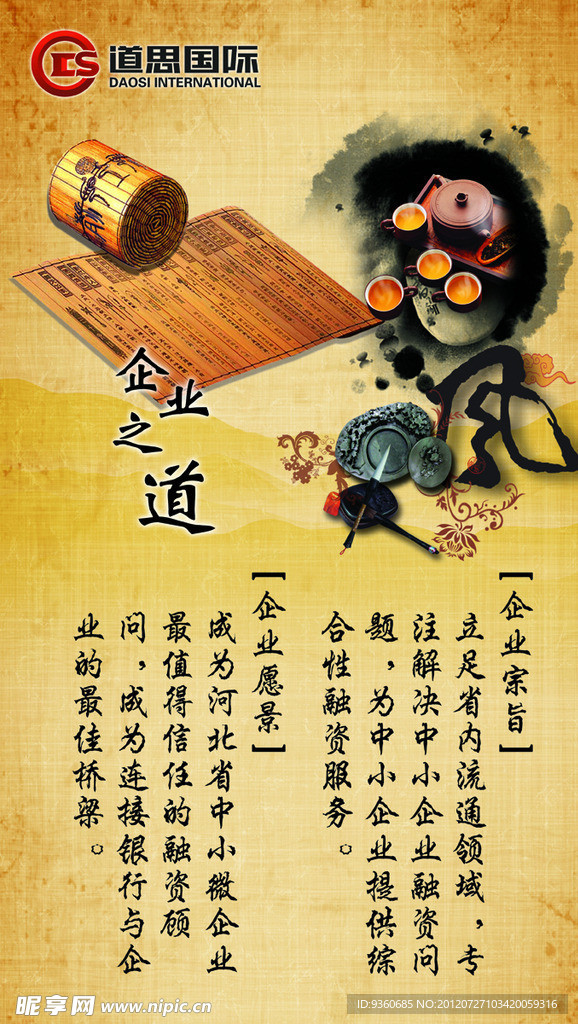 道思国际
DAOSI INTERNATIONAL
企业
之
道
风
【企业宗旨】
立足省内流通领域，专
注解决中小企业融资问
题，为中小企业提供综
合性融资服务。
【企业愿景】
成为河北省中小微企业
最值得信任的融资顾
问，成为连接银行与企
业的最佳桥梁。
昵享网 www.nipic.cn
ID:9360685 NO:20120727103420059316